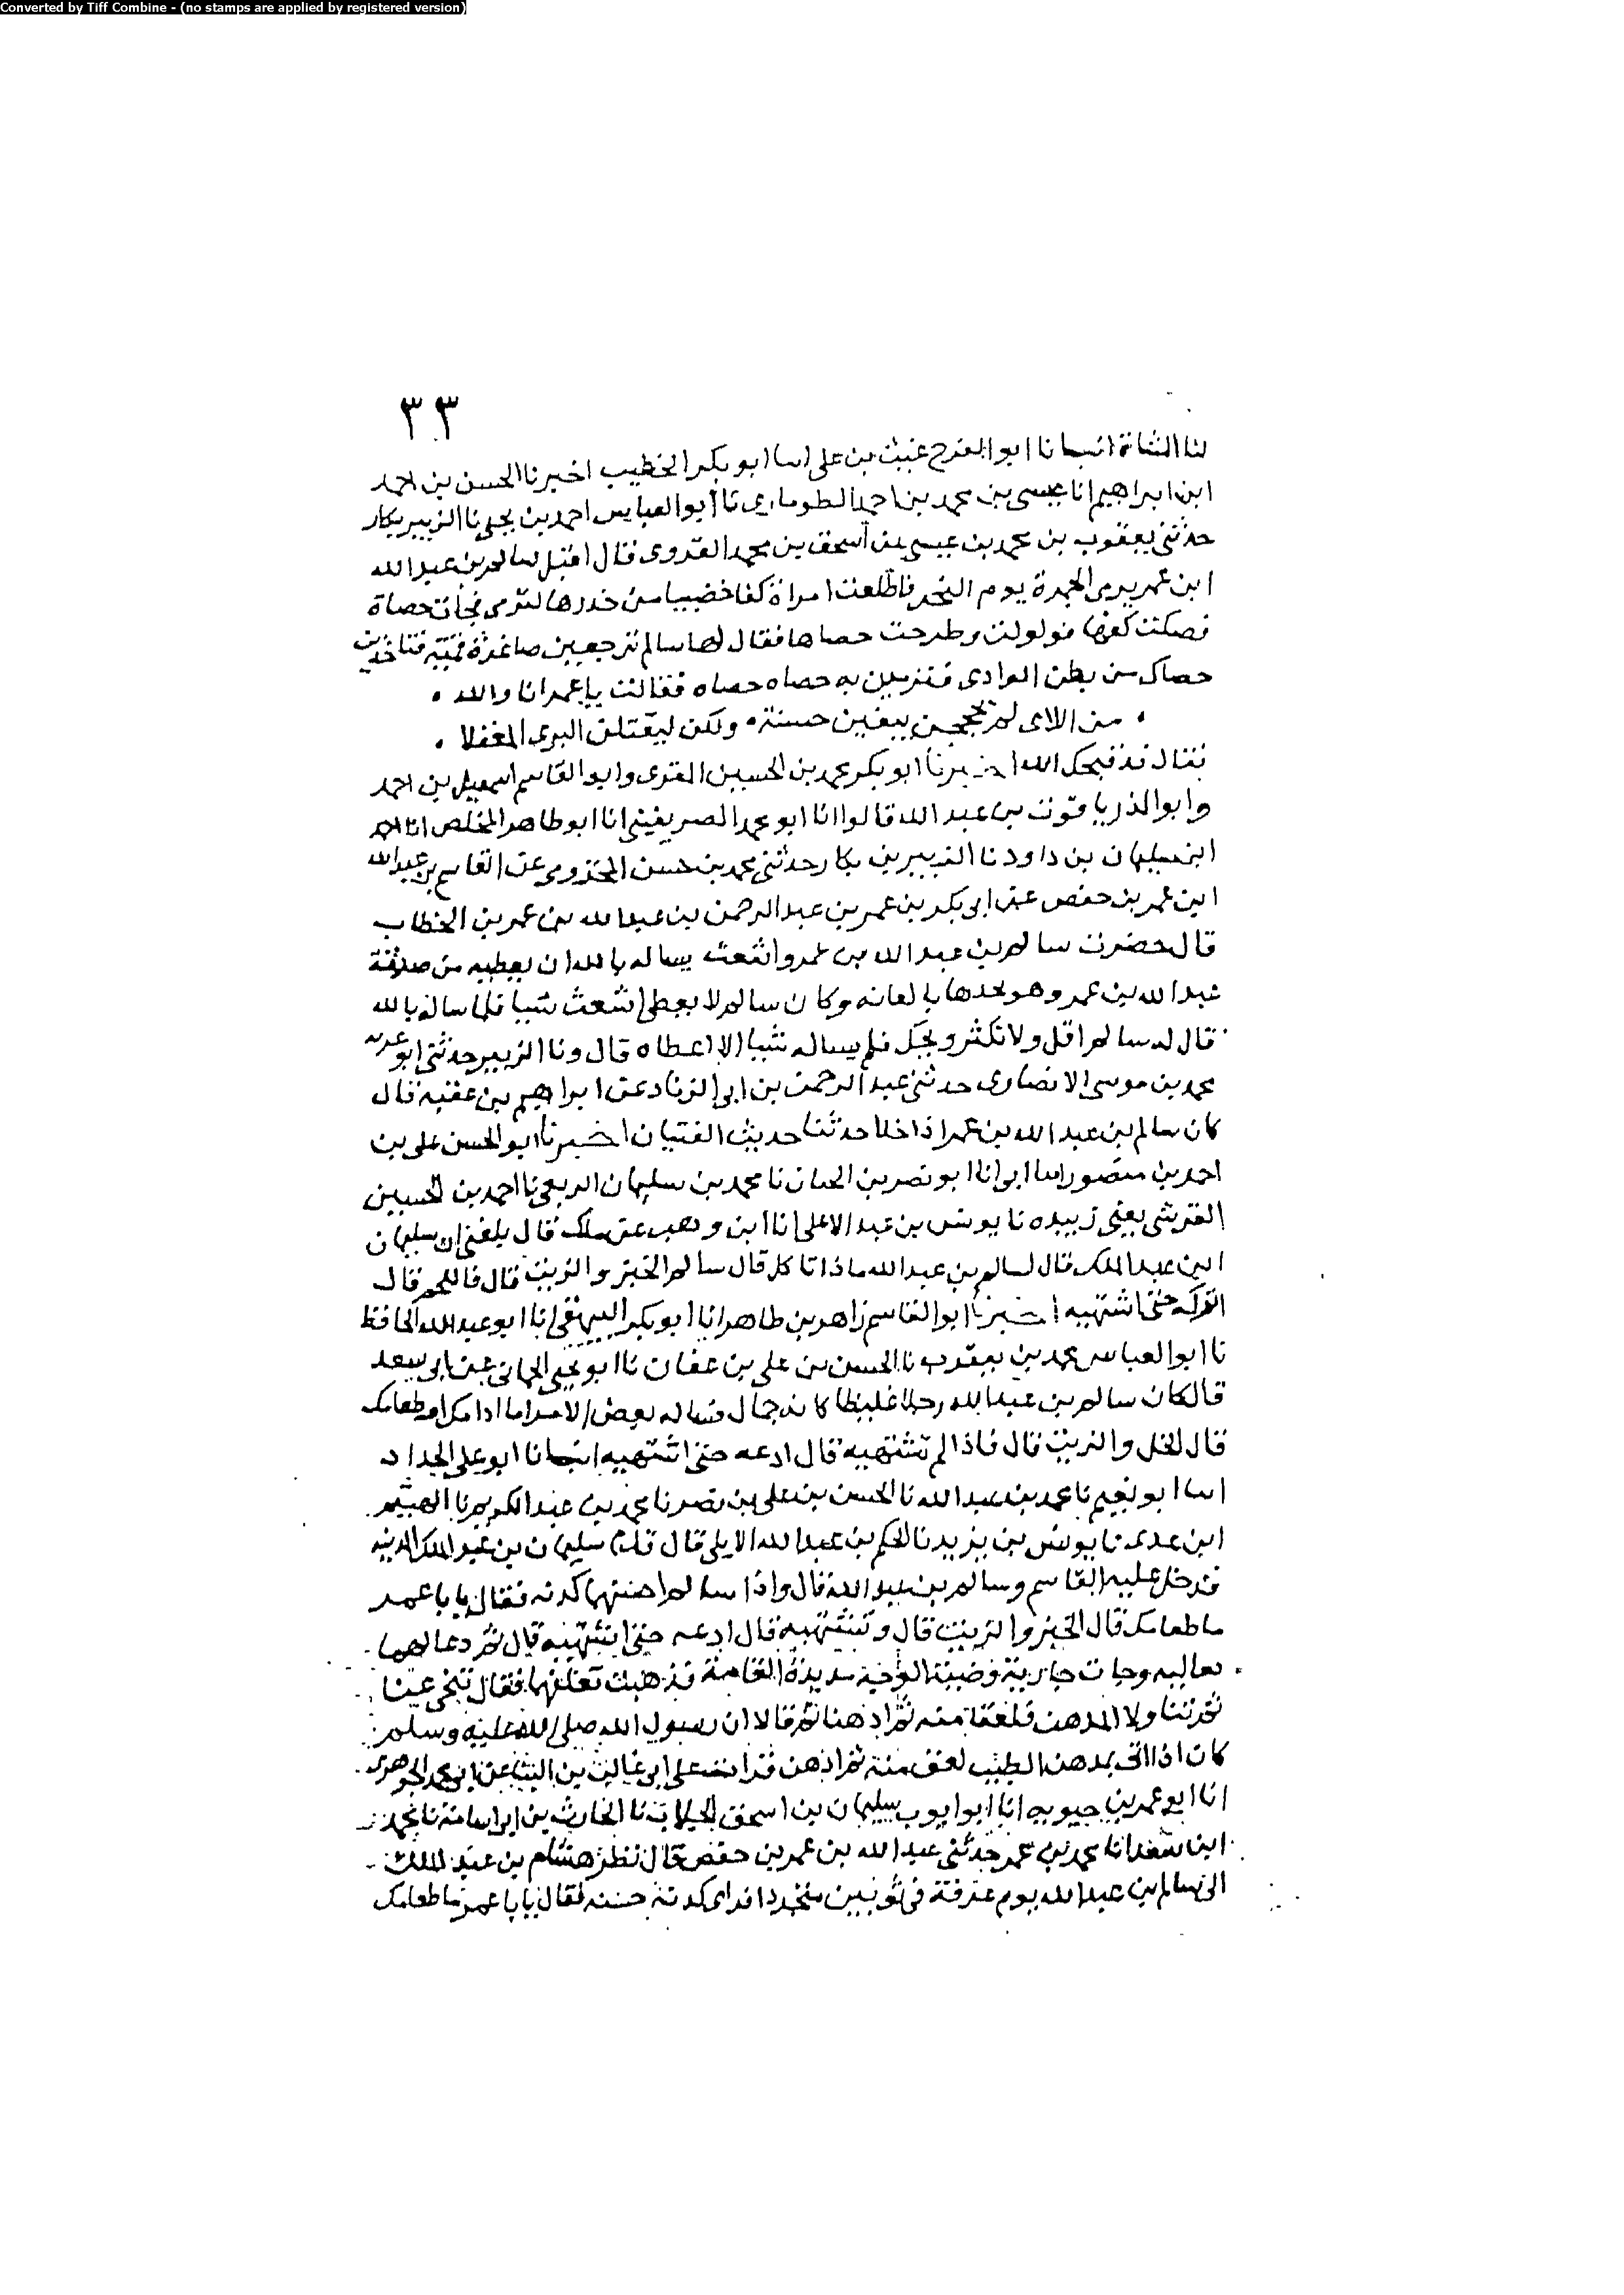 Converted by Tiff Combine - (no stamps are applied by registered version)
٣٣
لنا الشاة انبانا ابو الفرج غيث بن على انا ابو بكر الخطيب اخبرنا الحسن بن احمد
ابن ابراهيم انا عيسى بن محمد بن احمد الطومارى نا ابو العباس احمد بن يحيى نا الزبير بكار
حدثنى يعقوب بن محمد بن عيسى عن اسحق بن محمد الفروى قال اقبل سالم بن عبد الله
ابن عمر يرمى الجمرة يوم النحر فاطلعت امراة كفا خضيبا من خدرها لترمى فجات حصاة
فصكت كفها فولولت وطرحت حصاها فقال لها سالم ترجعين صاغرة قميئة فتاخذين
حصاك من بطن الوادى فترمين به حصاه حصاه فقالت يا عمر انا والله
من اللاى لم يحججن يبغين حسنة ولكن ليقتلن البرى المغفلا
فقال قبحك الله اخبرنا ابو بكر محمد بن الحسين المقرى وابو القاسم اسمعيل بن احمد
وابو الدر ياقوت بن عبد الله قالوا انا ابو محمد الصريفينى انا ابو طاهر المخلص انا احمد
ابن سليمان بن داود نا الزبير بن بكار حدثنى محمد بن حسن المخزومى عن القاسم بن عبد الله
ابن عمر بن حفص عن ابى بكر بن عمر بن عبد الرحمن بن عبد الله بن عمر بن الخطاب
قال حضرت سالم بن عبد الله بن عمر واشعث يساله بالله ان يعطيه من صدقة
عبد الله بن عمر وهو يجدها بالغابه وكان سالم لا يعطى اشعث شيا فلما ساله بالله
قال له سالم اقل ولا تكثر ويحك فلم يساله شيا الا اعطاه قال ونا الزبير حدثنى ابو غزيه
محمد بن موسى الانصارى حدثنى عبد الرحمن بن ابى الزناد عن ابراهيم بن عقبه قال
كان سالم بن عبد الله بن عمر اذا خلا حدثنا حديث الفتيان اخبرنا ابو الحسن على بن
احمد بن منصور انا ابى انا ابو نصر بن الجبان نا محمد بن سليمان الربعى نا احمد بن الحسين
القرشى يعنى زبيده نا يونس بن عبد الاعلى انا ابن وهب عن ملك قال بلغنى ان سليمان
ابن عبد الملك قال لسالم بن عبد الله ماذا تاكل قال سالم الخبز والزيت قال فاللحم قال
اتركه حتى اشتهيه اخبرنا ابو القاسم زاهر بن طاهر انا ابو بكر البيهقى انا ابو عبد الله الحافظ
نا ابو العباس محمد بن يعقوب نا الحسن بن على بن عفان نا ابو يحيى الحمانى عن ابى سعد
قال كان سالم بن عبد الله رجلا غليظا كانه جمال فساله بعض الامرا ما ادامك او طعامك
قال الخل والزيت قال فاذا لم تشتهيه قال ادعه حتى اشتهيه انبانا ابو على الحداد
انا ابو نعيم نا محمد بن عبد الله نا الحسن بن على بن نصر نا محمد بن عبد الكريم نا الهيثم
ابن عدى نا يونس بن يزيد نا الحكم بن عبد الله الايلى قال قدم سليمان بن عبد الملك المدينه
فدخل عليه القاسم وسالم بن عبد الله قال واذا سالم احسنهما كدنه فقال يابا عمر
ما طعامك قال الخبز والزيت قال وتشتهيه قال ادعه حتى اشتهيه قال ثم دعا لهما
بغاليه وجات جارية وضيئة الوجه مديدة القامة فذهبت تغلفهما فقال تنحى عنا
ثم تناولا المدهن فلعقا منه ثم ادهنا ثم قالا ان رسول الله صلى الله عليه وسلم
كان اذا اتى بمدهن الطيب لعق منه ثم ادهن قرات على ابى غالب بن البنا عن ابى محمد الجوهرى
انا ابو عمر بن حيويه انا ابو ايوب سليمان بن اسحق الجلاب نا الحارث بن ابى اسامة نا محمد
ابن سعد انا محمد بن عمر حدثنى عبد الله بن عمر بن حفص قال نظر هشام بن عبد الملك
الى سالم بن عبد الله يوم عرفة فى ثوبين متجردا فراى كدنة حسنه فقال يابا عمر ما طعامك